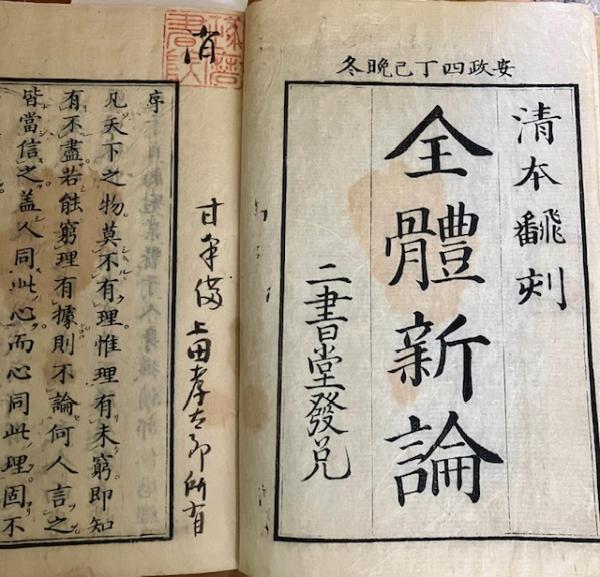 安政四丁己晩冬
清本飜刻
全體新論
二書堂發兌
上田孝太郎所有
序
凡天下之物莫不有理惟理有未窮即知
有不盡若能窮理有據則不論何人言之
皆當信之盖人同此心而心同此理固不